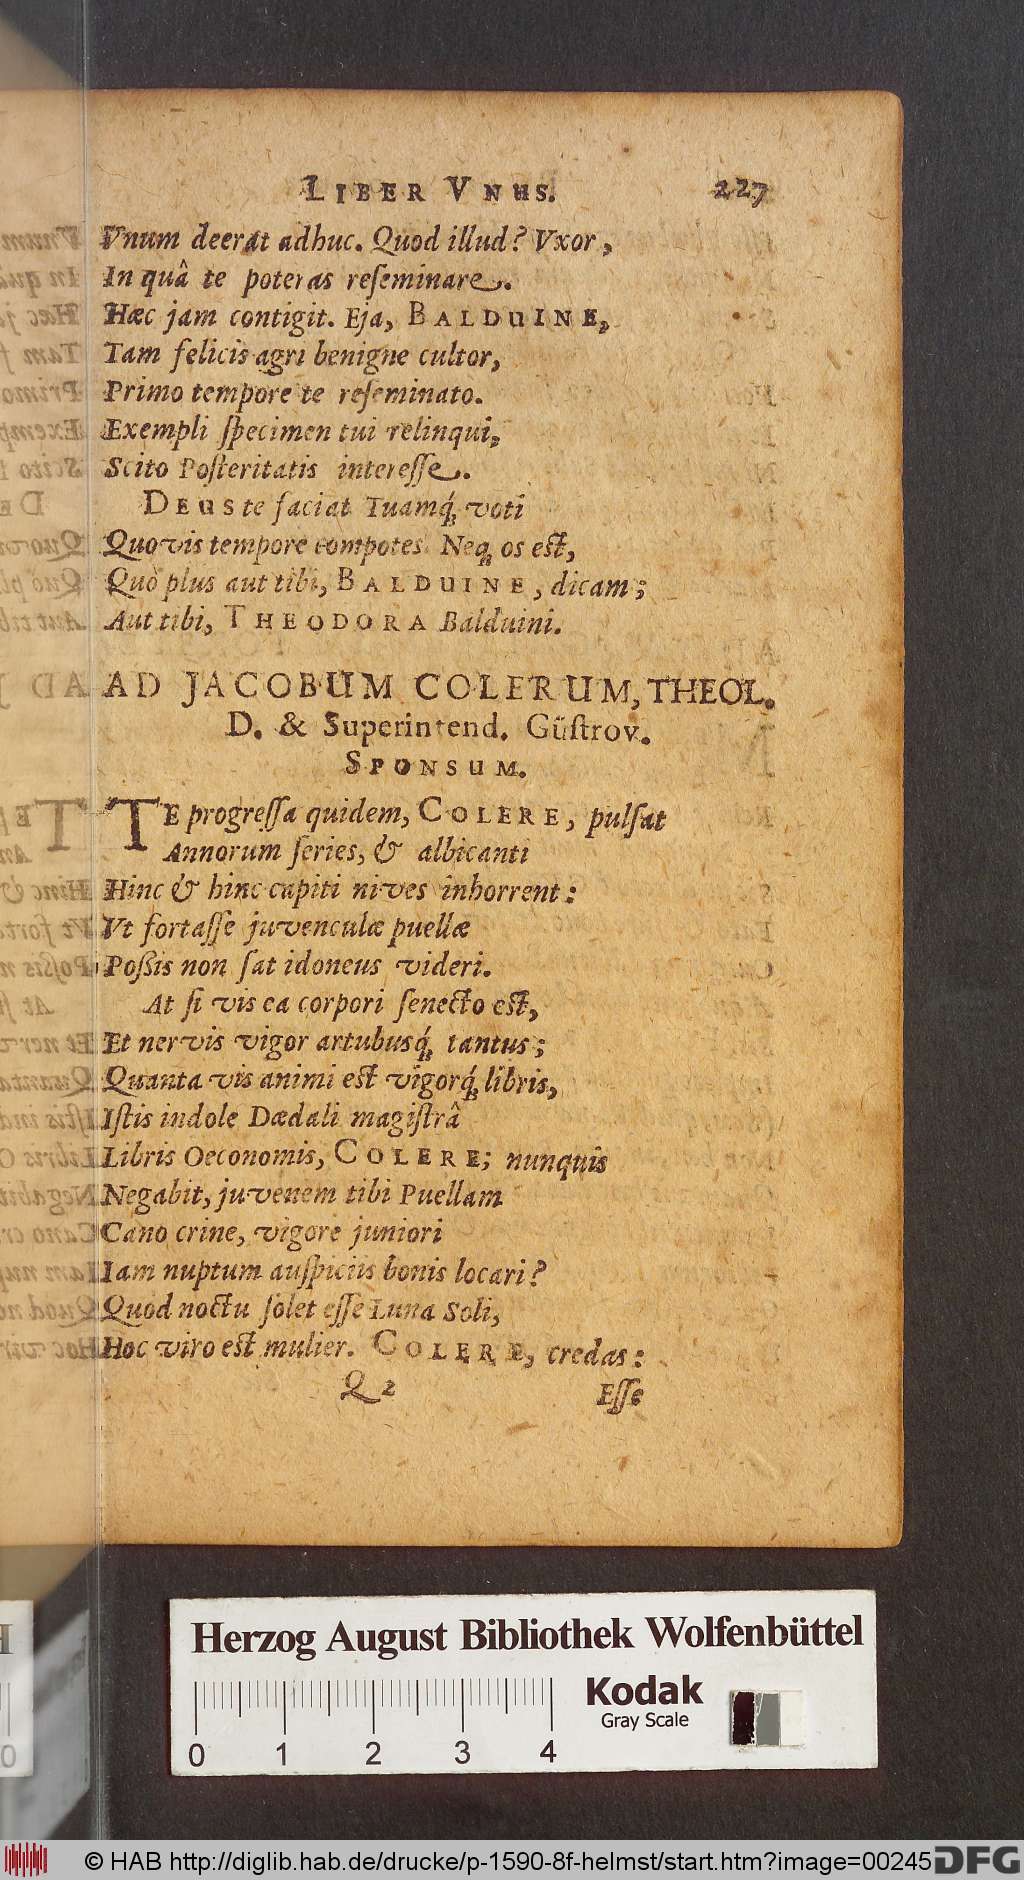 LIBER VNUS. 227
Vnum deerat adhuc. Quod illud? Vxor,
In quâ te poteras reseminare.
Hæc jam contigit. Eja, BALDUINE,
Tam felicis agri benigne cultor,
Primo tempore te reseminato.
Exempli specimen tui relinqui,
Scito Posteritatis interesse.
DEUS te faciat Tuamq́; voti
Quovis tempore compotes. Neq; os est,
Quò plus aut tibi, BALDUINE, dicam;
Aut tibi, THEODORA Balduini.
AD JACOBUM COLERUM, THEOL.
D. & Superintend. Güstrov.
SPONSUM.
TE progressa quidem, COLERE, pulsat
Annorum series, & albicanti
Hinc & hinc capiti nives inhorrent:
Vt fortasse juvenculæ puellæ
Poßis non sat idoneus videri.
At si vis ea corpori senecto est,
Et nervis vigor artubusq́; tantus;
Quanta vis animi est vigorq́; libris,
Istis indole Dædali magistrâ
Libris Oeconomis, COLERE; nunquis
Negabit, juvenem tibi Puellam
Cano crine, vigore juniori
Iam nuptum auspiciis bonis locari?
Quod noctu solet esse Luna Soli,
Hoc viro est mulier. COLERE, credas:
Q 2 Esse
Herzog August Bibliothek Wolfenbüttel
Kodak
Gray Scale
0 1 2 3 4
© HAB http://diglib.hab.de/drucke/p-1590-8f-helmst/start.htm?image=00245
DFG